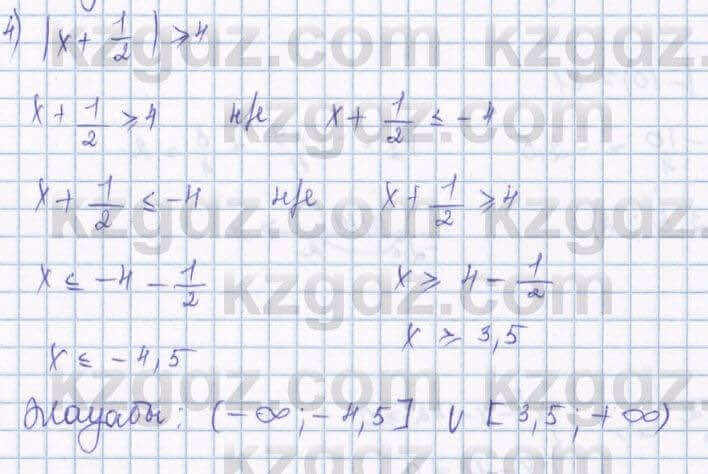 4) |x + 1/2| ⩾ 4
x + 1/2 ⩾ 4 н/е x + 1/2 ≤ -4
x + 1/2 ≤ -4 н/е x + 1/2 ⩾ 4
x ≤ -4 - 1/2 x ⩾ 4 - 1/2
x ≤ -4,5 x ⩾ 3,5
Жауабы: (-∞; -4,5] ∪ [3,5; +∞)
kzgdz.com
kzgdz.com
kzgdz.com
kzgdz.com
kzgdz.com
kzgdz.com